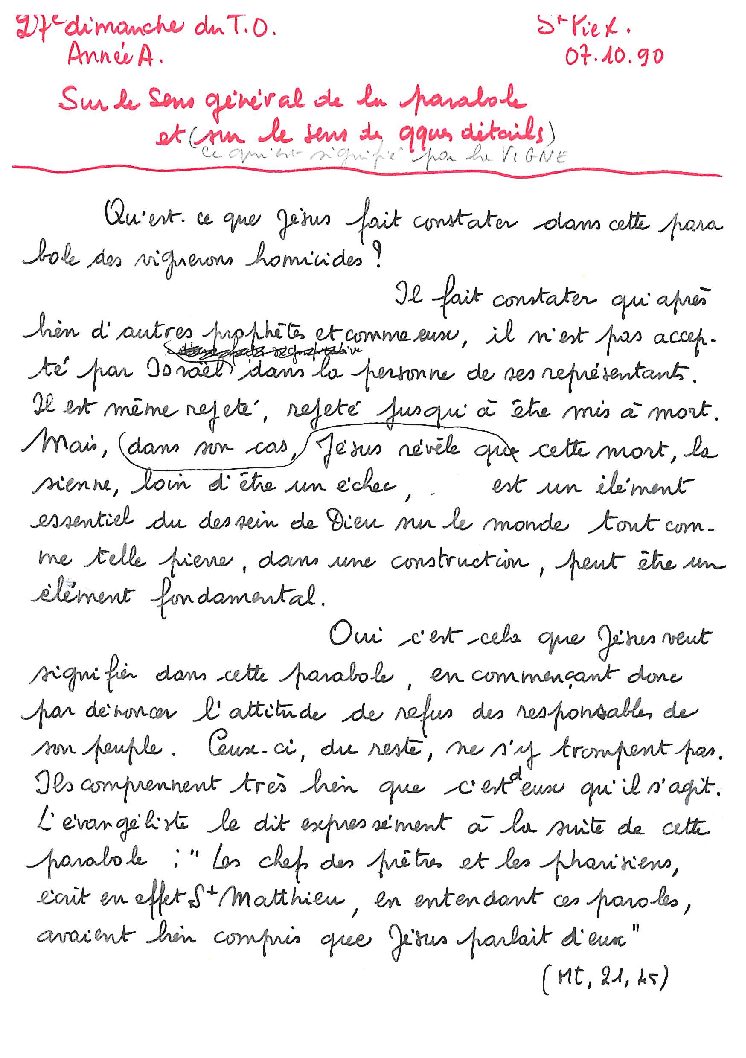 27e dimanche du T.O.
St Pie X.
Année A.
07.10.90
Sur le sens général de la parabole
et (sur le sens de qques détails)
ce qui est signifié par la VIGNE
Qu'est-ce que Jésus fait constater dans cette para
bole des vignerons homicides ?
Il fait constater qu'après
bien d'autres prophètes et comme eux, il n'est pas accep-
té par Israël dans la personne de ses représentants.
Il est même rejeté, rejeté jusqu'à être mis à mort.
Mais, (dans son cas, Jésus révèle que cette mort, la
sienne, loin d'être un échec, est un élément
essentiel du dessein de Dieu sur le monde tout com-
me telle pierre, dans une construction, peut être un
élément fondamental.
Oui c'est cela que Jésus veut
signifier dans cette parabole, en commençant donc
par dénoncer l'attitude de refus des responsables de
son peuple. Ceux-ci, du reste, ne s'y trompent pas.
Ils comprennent très bien que c'est d'eux qu'il s'agit.
L'évangéliste le dit expressément à la suite de cette
parabole : "Les chefs des prêtres et les pharisiens,
écrit en effet St Matthieu, en entendant ces paroles,
avaient bien compris que Jésus parlait d'eux"
(Mt, 21, 45)